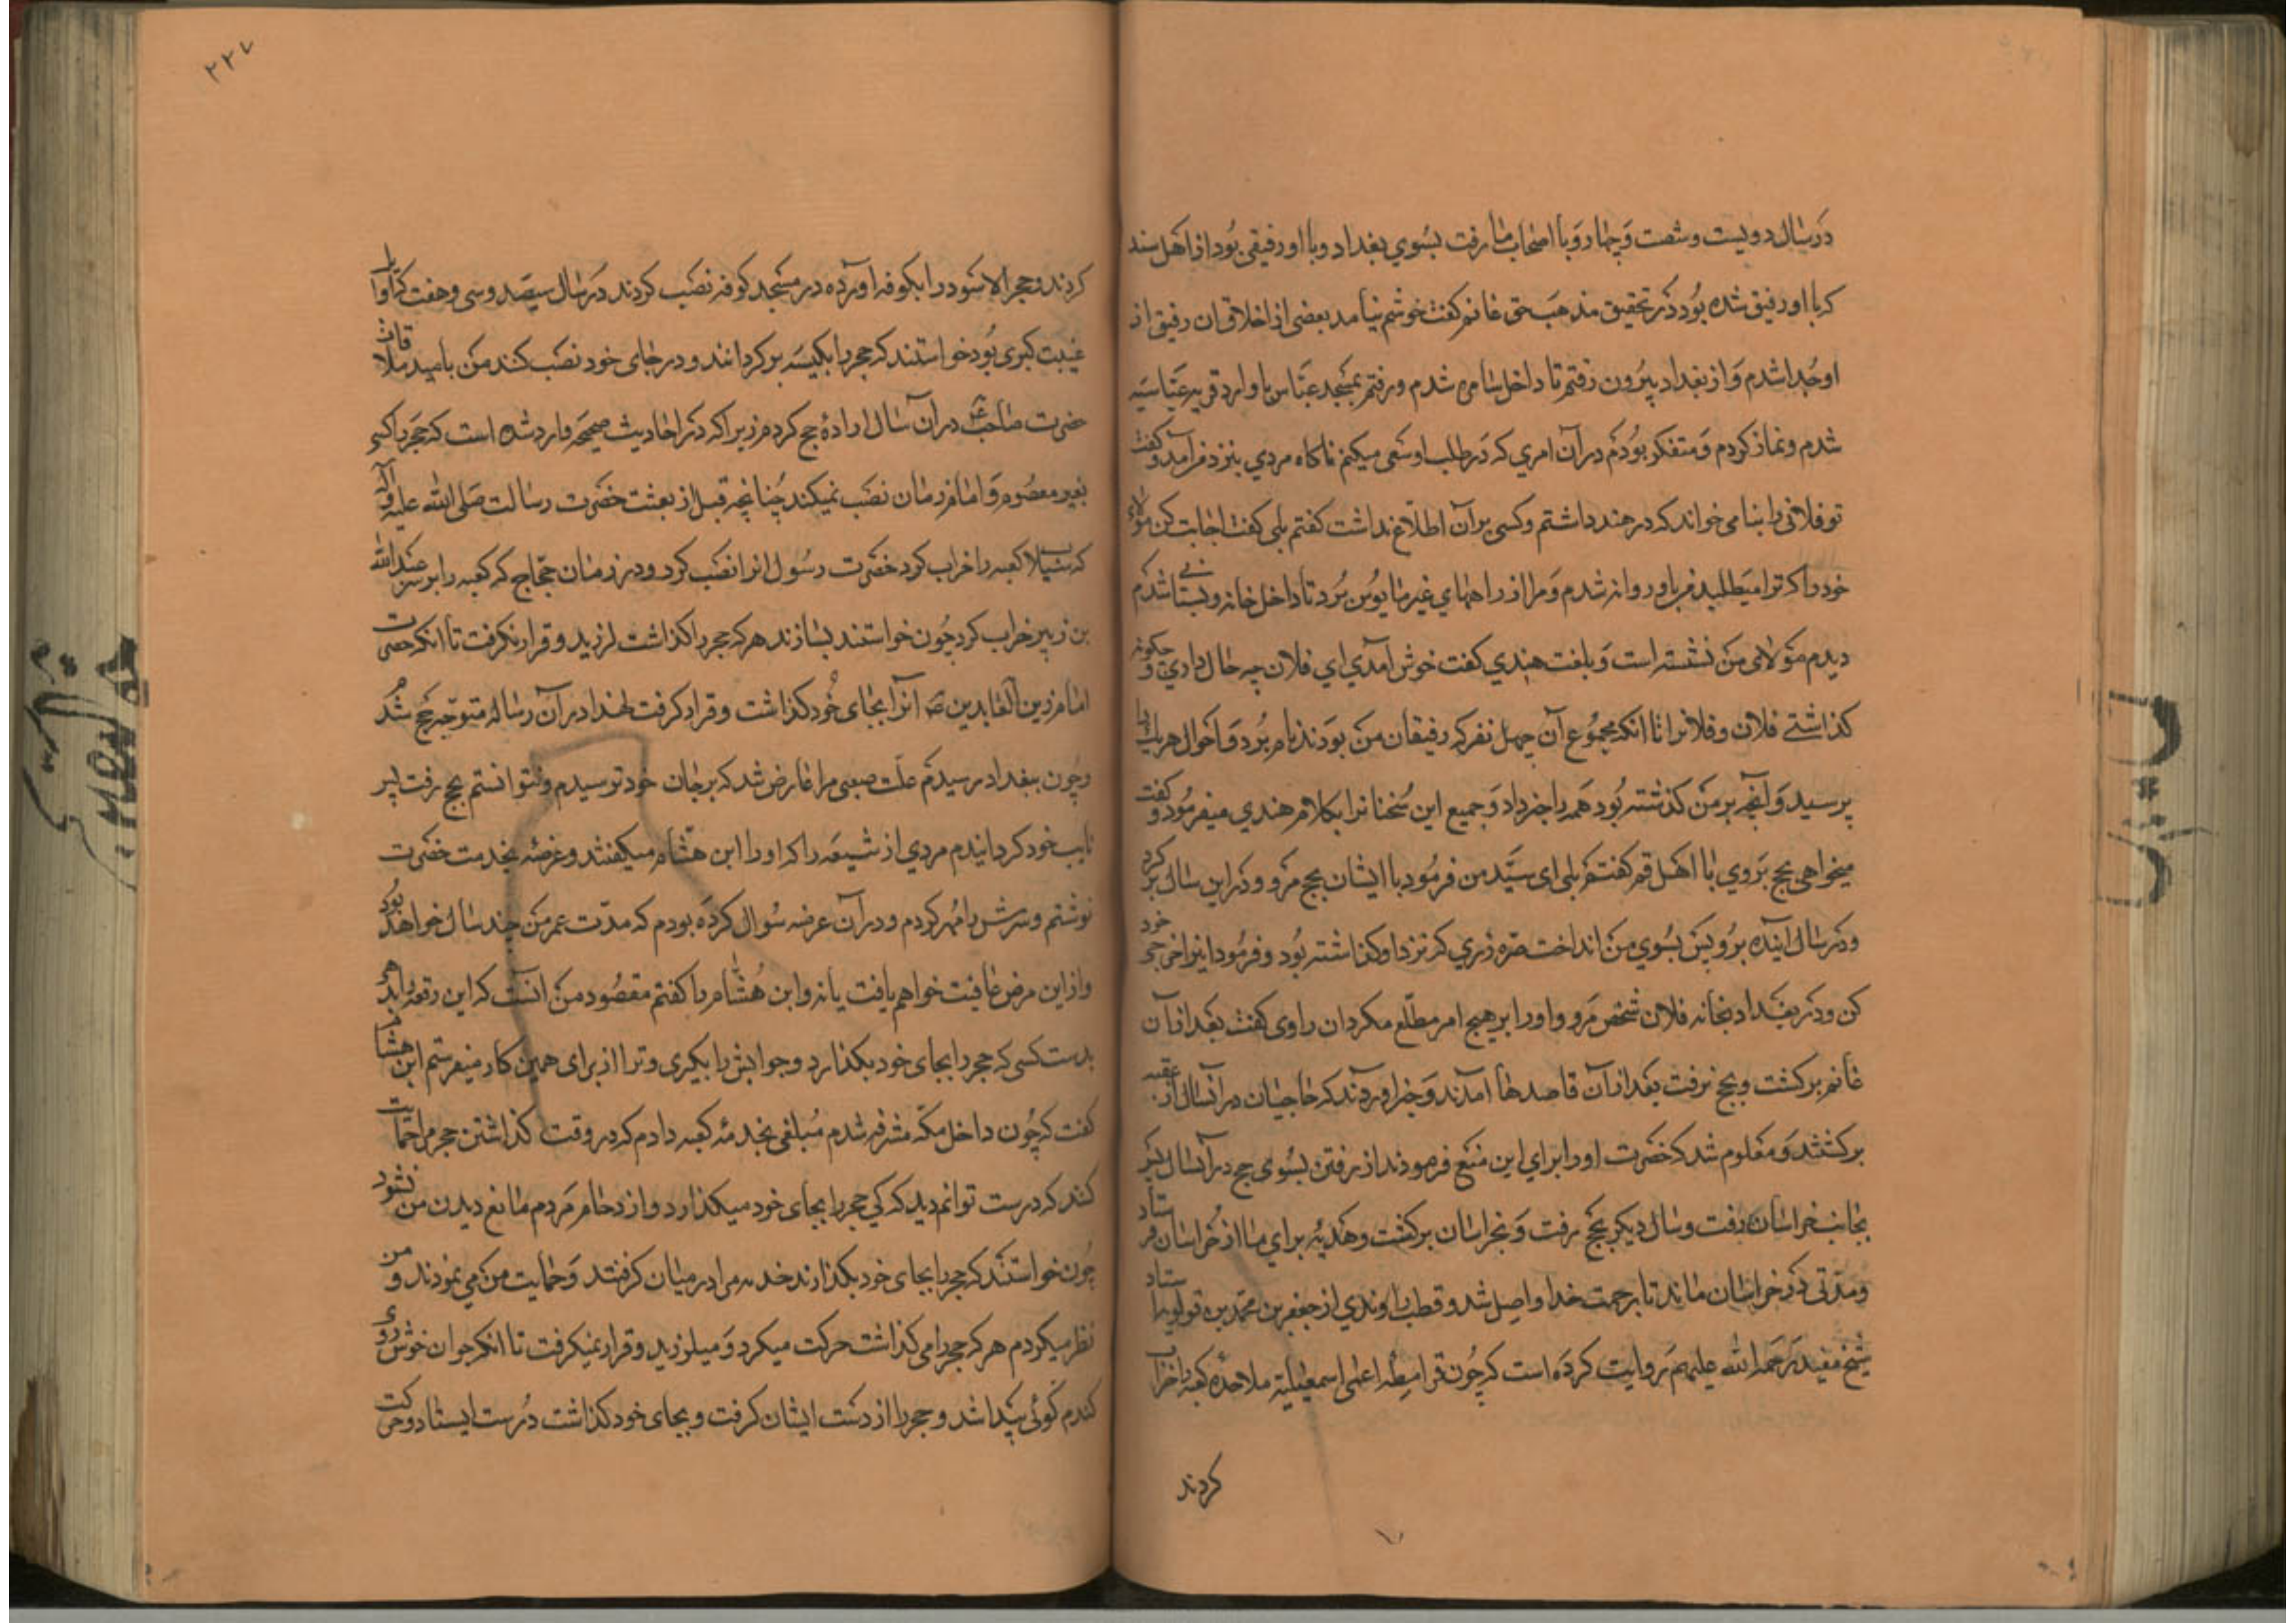 در سال دویست و شصت و چهار و با اصحاب ما رفت بسوی بغداد و با او رفیقی بود از اهل سند
که با او رفیق شده بود در تحقیق مذهب حق غانم گفت خوشم نیامد بعضی از اخلاق آن رفیق از
او جدا شدم و از بغداد بیرون رفتم تا داخل سامره شدم و رفتم بمسجد عباس یا وارد قریه عباسیه
شدم و نماز کردم و متفکر بودم در آن امری که در طلب او سعی میکنم ناگاه مردی بنزد من آمد و گفت
تو فلانی را بنامی خواند که در هند داشتم و کسی بر آن اطلاع نداشت گفتم بلی گفت اجابت کن مولای
خود را که ترا میطلبد من با او روانه شدم و مرا از راههای غیر مأنوس برد تا داخل خانه و بستانی شدم
دیدم مولای من نشسته است و بلغت هندی گفت خوش آمدی ای فلان چه حال داری و چگونه
گذاشتی فلان و فلانرا تا آنکه مجموع آن چهل نفر که رفیقان من بودند نام برد و احوال هر یک را
پرسید و آنچه بر من گذشته بود همه را خبر داد و جمیع این سخنانرا بکلام هندی میفرمود و گفت
میخواهی بحج بروی با اهل قم گفتم بلی ای سید من فرمود با ایشان بحج مرو و در این سال برگرد
و در سال آینده برو پس بسوی من انداخت صره زری که نزد او گذاشته بود و فرمود اینرا خرجی خود
کن و در بغداد بخانه فلان شخص مرو و او را بر هیچ امر مطلع مگردان راوی گفت بعد از آن
غانم برگشت و بحج نرفت بعد از آن قاصدها آمدند و خبر آوردند که حاجیان در آنسال از عقبه
برگشتند و معلوم شد که حضرت او را برای این منع فرمودند از رفتن بسوی حج در آنسال پس
بجانب خراسان رفت و سال دیگر بحج رفت و بخراسان برگشت و هدیه برای ما از خراسان فرستاد
و مدتی در خراسان ماند تا برحمت خدا واصل شد و قطب راوندی از جعفر بن محمد بن قولویه استاد
شیخ مفید رحمه الله علیهم روایت کرده است که چون قرامطه اعنی اسمعیلیه ملاحده کعبه را خراب
کردند
۲۲۷
کردند و حجر الاسود را بکوفه آورده در مسجد کوفه نصب کردند در سال سیصد و سی و هفت که اوایل
غیبت کبری بود خواستند که حجر را بکعبه برگردانند و در جای خود نصب کنند من بامید ملاقات
حضرت صاحب ع در آن سال اراده حج کردم زیرا که در احادیث صحیحه وارد شده است که حجر را کسی
بغیر معصوم و امام زمان نصب نمیکند چنانچه قبل از بعثت حضرت رسالت صلی الله علیه و آله
که سیلاب کعبه را خراب کرد حضرت رسول انرا نصب کرد و در زمان حجاج که کعبه را بر سر عبدالله
بن زبیر خراب کرد چون خواستند بسازند هر که حجر را گذاشت لرزید و قرار نگرفت تا آنکه حضرت
امام زین العابدین ص انرا بجای خود گذاشت و قرار گرفت لهذا در آن سال متوجه حج شدم
و چون ببغداد رسیدم علت صعبی مرا عارض شد که بر جان خود ترسیدم و نتوانستم بحج رفت پس
نایب خود گردانیدم مردی از شیعه را که او را ابن هشام میگفتند و عرضه بخدمت حضرت
نوشتم و سرش را مهر کردم و در آن عرضه سوال کرده بودم که مدت عمر من چند سال خواهد بود
و از این مرض عافیت خواهم یافت یا نه و ابن هشام را گفتم مقصود من آنست که این رقعه را بدهی
بدست کسی که حجر را بجای خود بگذارد و جوابش را بگیری و ترا از برای همین کار میفرستم ابن هشام
گفت که چون داخل مکه مشرفه شدم مبلغی بخدمه کعبه دادم که در وقت گذاشتن حجر مرا حمایت
کنند که درست توانم دید که کی حجر را بجای خود میگذارد و ازدحام مردم مانع دیدن من نشود
چون خواستند که حجر را بجای خود بگذارند خدمه مرا در میان گرفتند و حمایت من می نمودند و من
نظر میکردم هر که حجر را می گذاشت حرکت میکرد و میلرزید و قرار نمیگرفت تا آنکه جوان خوش روی
گندم گونی پیدا شد و حجر را از دست ایشان گرفت و بجای خود گذاشت درست ایستاد و حرکت